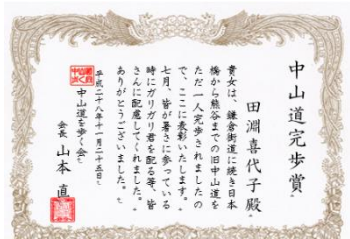 中山道完歩賞
田淵喜代子殿
貴女は、鎌倉街道に続き日本
橋から熊谷までの旧中山道を
ただ一人完歩されましたの
で、ここに表彰いたします。
七月、皆が暑さに参っている
時にガリガリ君を配る等、皆
さんに配慮してくれました。
ありがとうございました。
平成二十八年十一月二十五日
中山道を歩く会
会長 山本 直